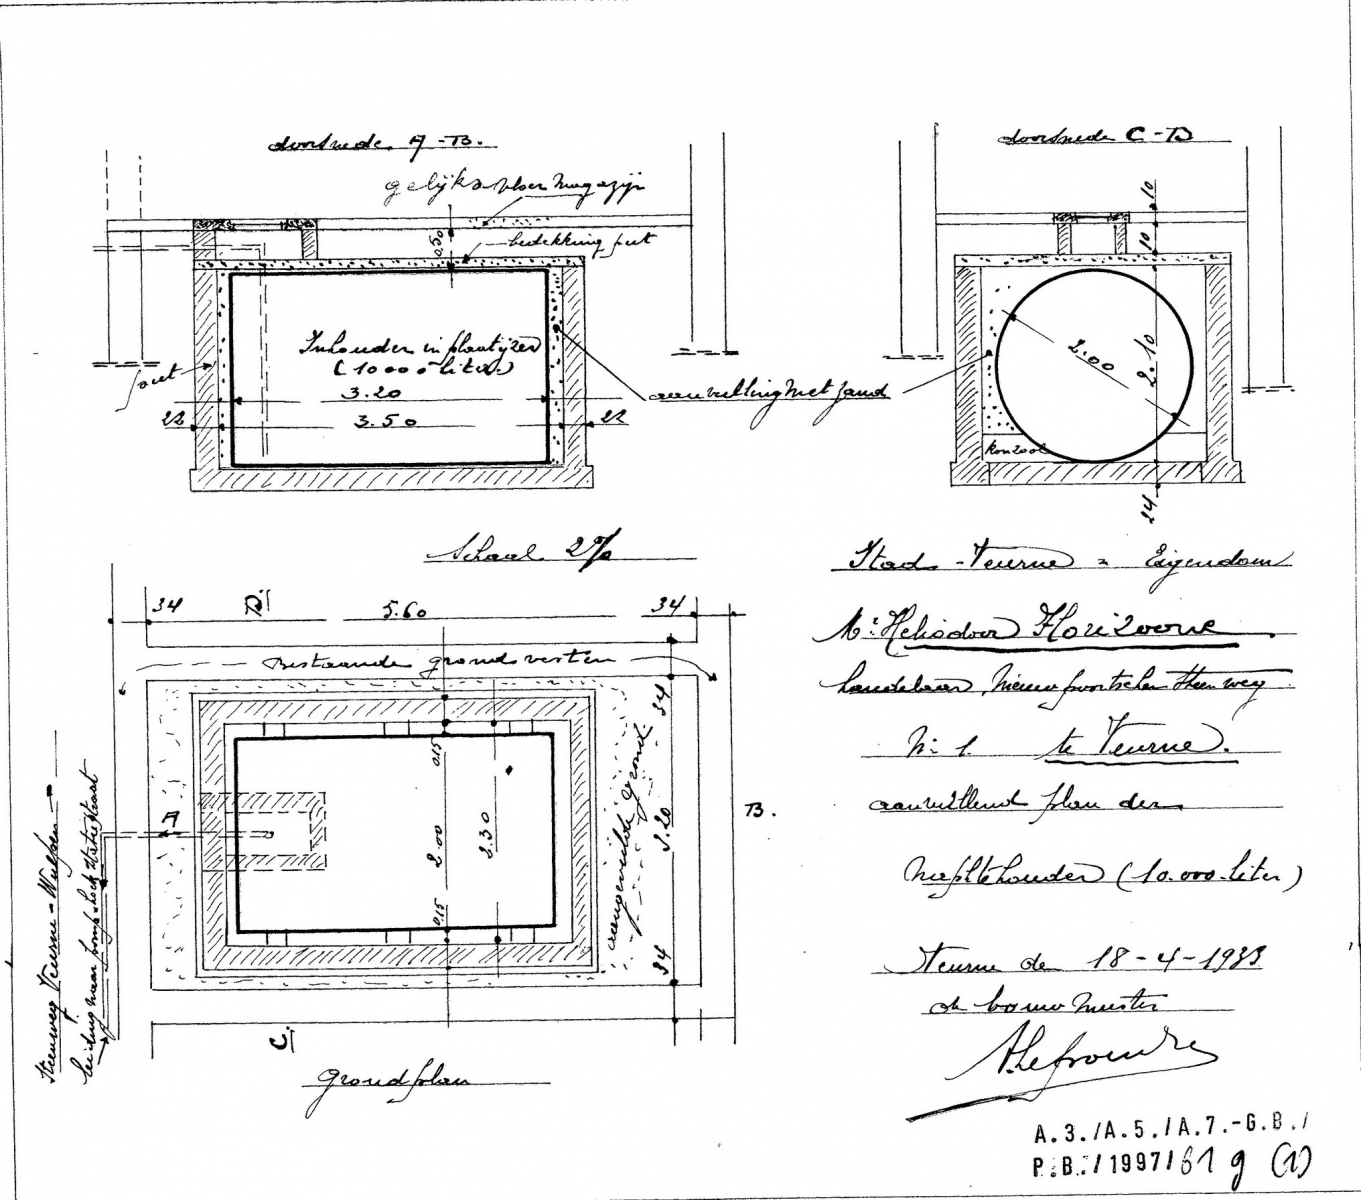 doorsnede A-B.
gelijks vloer magazijn
0.50
bedekking put
Inhouder in plaatijzer
(10000 liter.)
put
3.20
22 3.50 22
aanvulling met zand
doorsnede C-D
10
10
2.00
2.10
konzool
24
Schaal 2%
34 D. 5.60 34
Bestaande grondvesten
34
0.15
2.00
2.30
0.15
3.20
34
aangevulde grond
A
B.
C.
Steenweg Veurne-Wulpen
leiding naar pomp hoek Statiestraat
grondplan
Stad - Veurne = Eigendom
Mr. Heliodoor Florizoone
handelaar Nieuwpoortschen Steenweg
Nr 1. te Veurne.
aanvullend plan der
Naphtehouder (10.000 liter)
Veurne de 18-4-1933
de bouwmeester
A.3./A.5./A.7.-G.B./
P.B./1997/61 g (1)